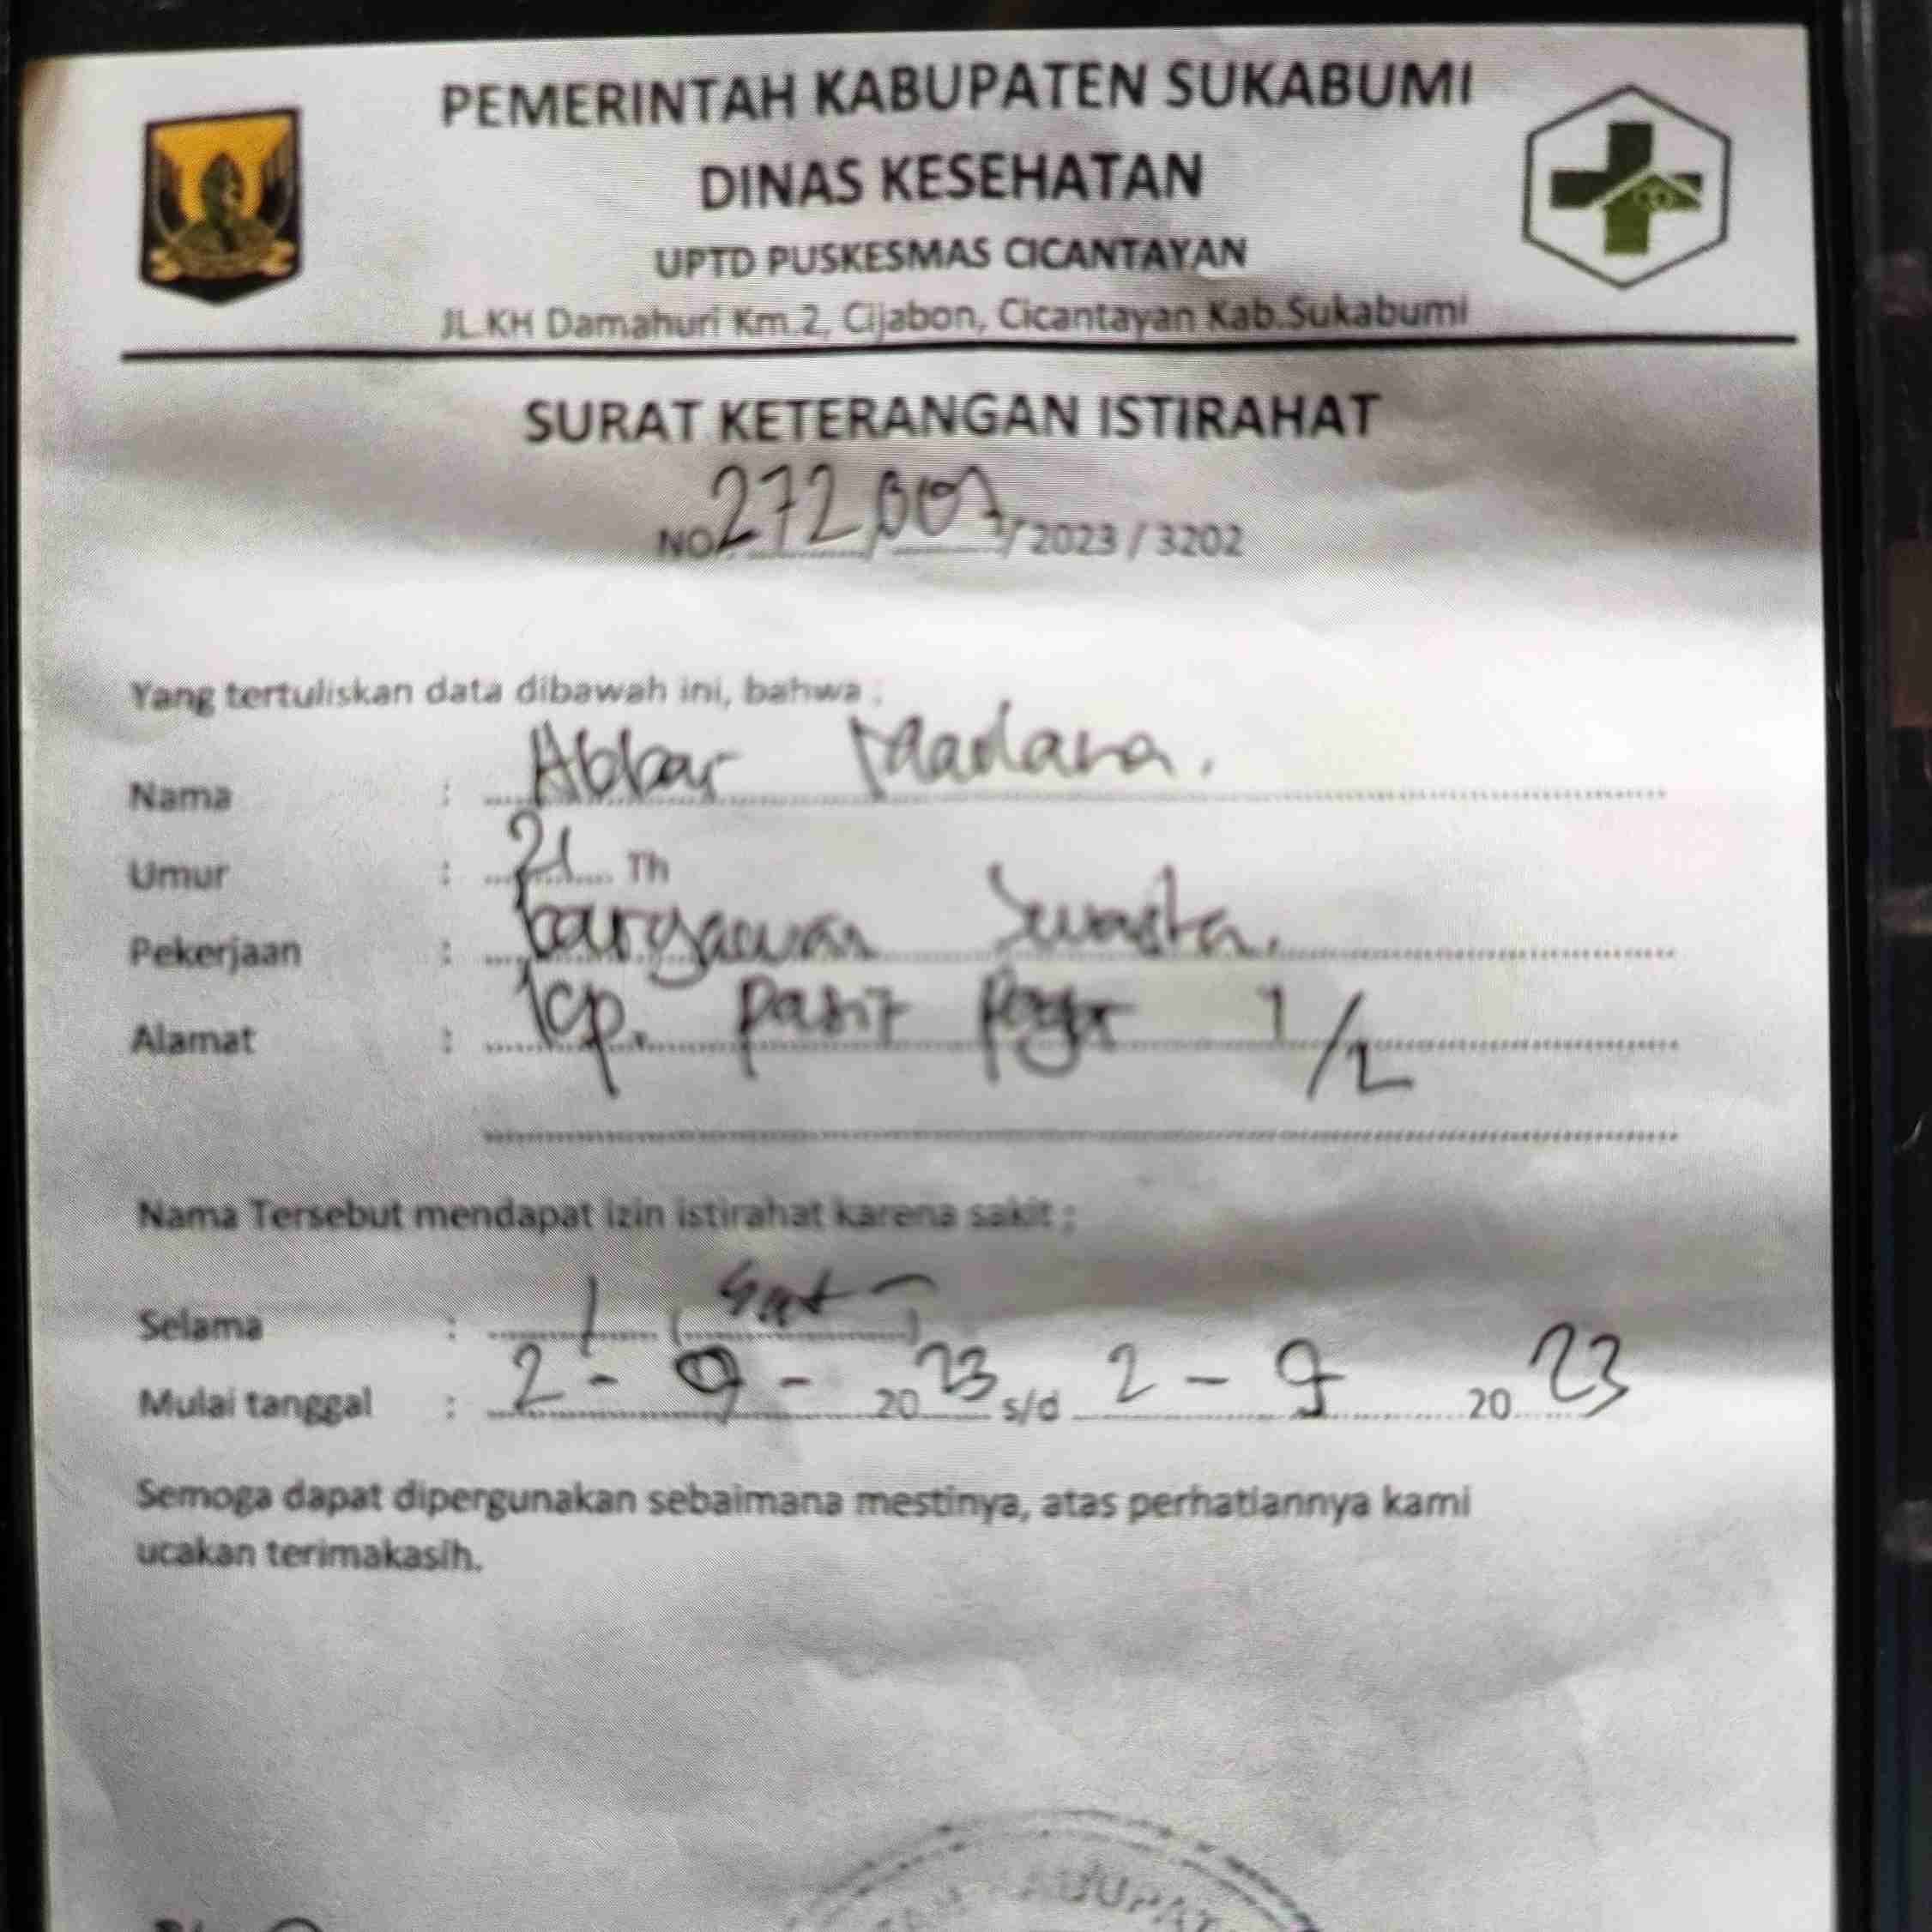 PEMERINTAH KABUPATEN SUKABUMI
DINAS KESEHATAN
UPTD PUSKESMAS CICANTAYAN
JL.KH Damahuri Km.2, Cijabon, Cicantayan Kab.Sukabumi
SURAT KETERANGAN ISTIRAHAT
NO. 272 / 007 / 2023 / 3202
Yang tertuliskan data dibawah ini, bahwa :
Nama : Akbar Maadana.
Umur : 21 Th
Pekerjaan : karyawan Swasta.
Alamat : kp. pasir pogor 1/2
Nama Tersebut mendapat izin istirahat karena sakit ;
Selama : 1 (Satu)
Mulai tanggal : 2 - 9 - 2023 s/d 2 - 9 2023
Semoga dapat dipergunakan sebaimana mestinya, atas perhatiannya kami
ucakan terimakasih.